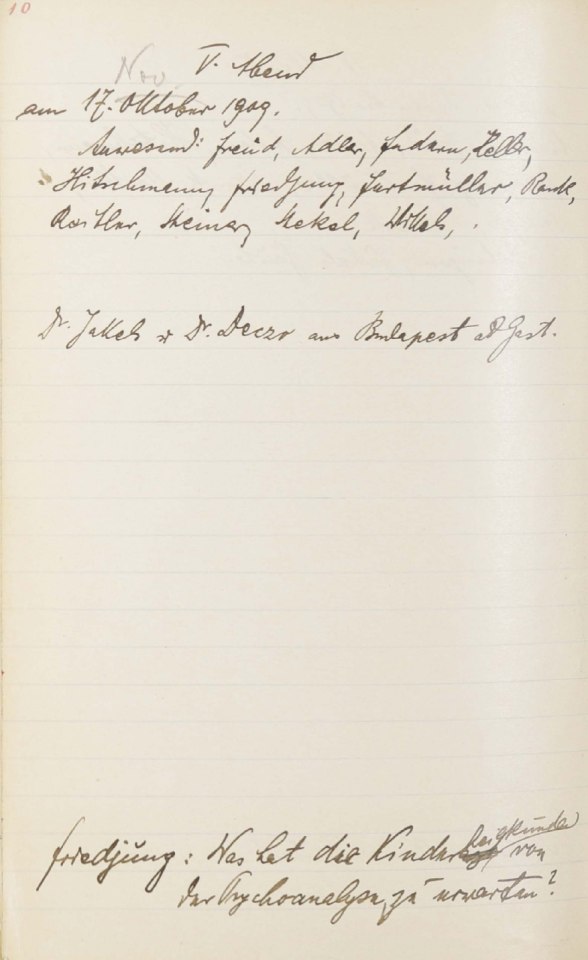 10
Nov
V. Abend
am 17. Oktober 1909.
Anwesend: Freud, Adler, Federn, Heller,
Hitschmann, Friedjung, Furtmüller, Rank,
Reitler, Steiner, Stekel, Wittels, .
Dr. Jekels u Dr. Deczr aus Budapest als Gast.
heilkunde
Friedjung: Was hat die Kinder von
der Psychoanalyse zu erwarten?